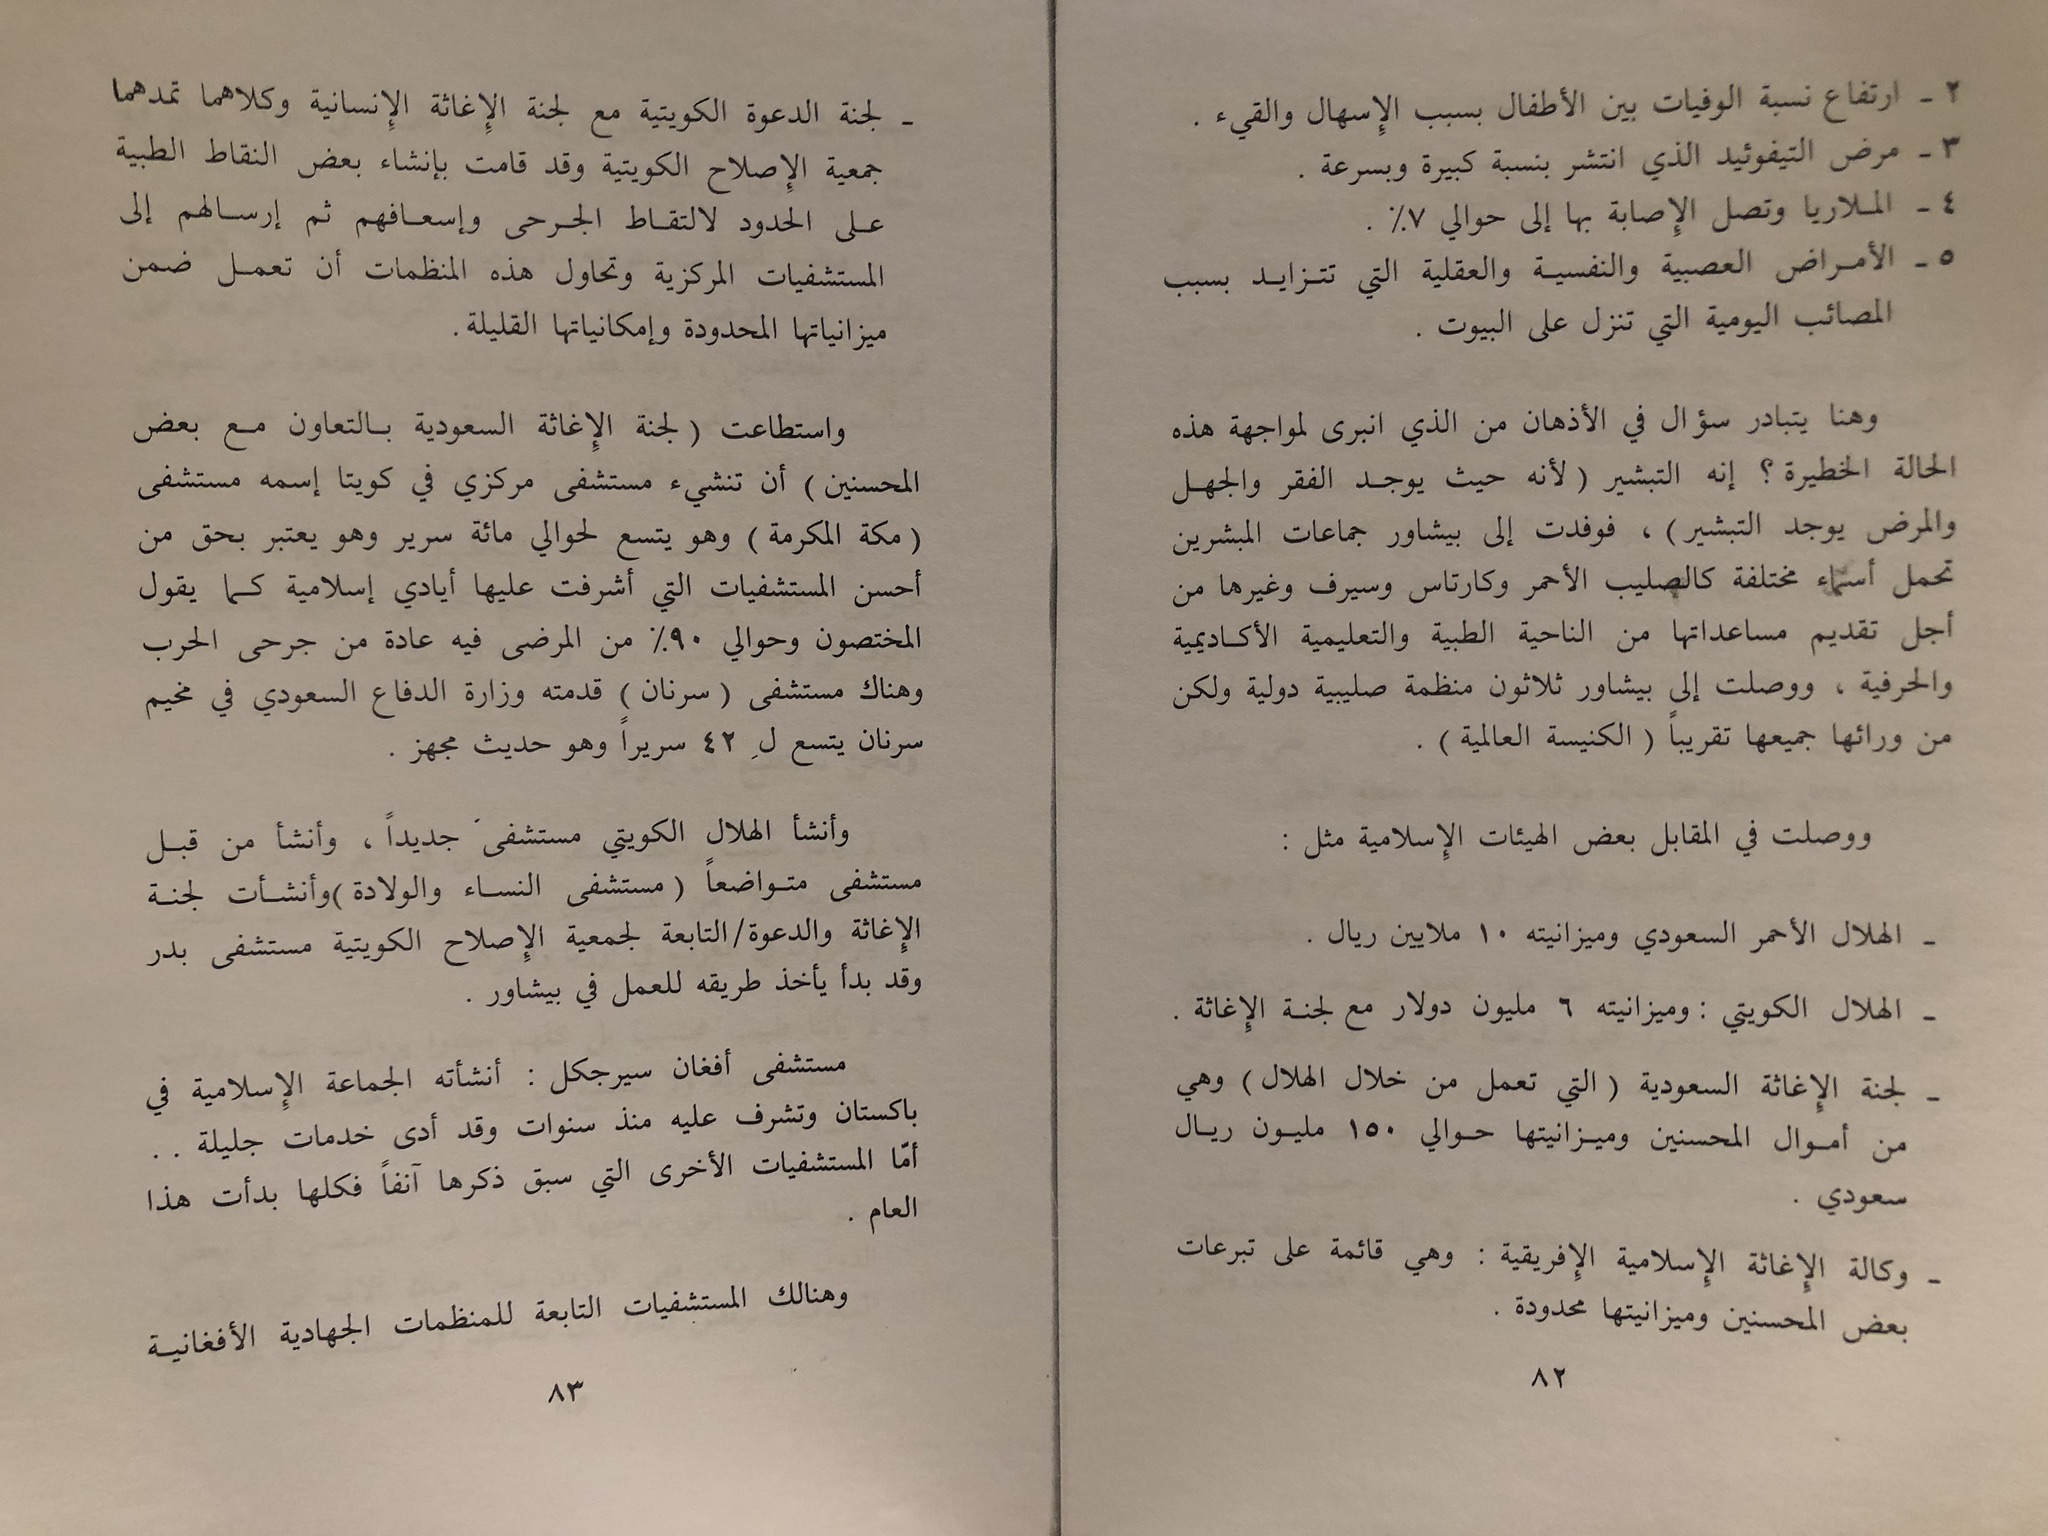 ٢ ـ ارتفاع نسبة الوفيات بين الأطفال بسبب الإسهال والقيء .
٣ ـ مرض التيفوئيد الذي انتشر بنسبة كبيرة وبسرعة .
٤ ـ الملاريا وتصل الإصابة بها إلى حوالي ٧٪ .
٥ ـ الأمراض العصبية والنفسية والعقلية التي تتزايد بسبب
المصائب اليومية التي تنزل على البيوت .
وهنا يتبادر سؤال في الأذهان من الذي انبرى لمواجهة هذه
الحالة الخطيرة ؟ إنه التبشير ( لأنه حيث يوجد الفقر والجهل
والمرض يوجد التبشير ) ، فوفدت إلى بيشاور جماعات المبشرين
تحمل أسماء مختلفة كالصليب الأحمر وكارتاس وسيرف وغيرها من
أجل تقديم مساعداتها من الناحية الطبية والتعليمية الأكاديمية
والحرفية ، ووصلت إلى بيشاور ثلاثون منظمة صليبية دولية ولكن
من ورائها جميعها تقريباً ( الكنيسة العالمية ) .
ووصلت في المقابل بعض الهيئات الإسلامية مثل :
ـ الهلال الأحمر السعودي وميزانيته ١٠ ملايين ريال .
ـ الهلال الكويتي : وميزانيته ٦ مليون دولار مع لجنة الإغاثة .
ـ لجنة الإغاثة السعودية ( التي تعمل من خلال الهلال ) وهي
من أموال المحسنين وميزانيتها حوالي ١٥٠ مليون ريال
سعودي .
ـ وكالة الإغاثة الإسلامية الإفريقية : وهي قائمة على تبرعات
بعض المحسنين وميزانيتها محدودة .
٨٢
ـ لجنة الدعوة الكويتية مع لجنة الإغاثة الإنسانية وكلاهما تمدهما
جمعية الإصلاح الكويتية وقد قامت بإنشاء بعض النقاط الطبية
على الحدود لالتقاط الجرحى وإسعافهم ثم إرسالهم إلى
المستشفيات المركزية وتحاول هذه المنظمات أن تعمل ضمن
ميزانياتها المحدودة وإمكانياتها القليلة .
واستطاعت ( لجنة الإغاثة السعودية بالتعاون مع بعض
المحسنين ) أن تنشيء مستشفى مركزي في كويتا إسمه مستشفى
( مكة المكرمة ) وهو يتسع لحوالي مائة سرير وهو يعتبر بحق من
أحسن المستشفيات التي أشرفت عليها أيادي إسلامية كما يقول
المختصون وحوالي ٩٠٪ من المرضى فيه عادة من جرحى الحرب
وهناك مستشفى ( سرنان ) قدمته وزارة الدفاع السعودي في مخيم
سرنان يتسع لِ ٤٢ سريراً وهو حديث مجهز .
وأنشأ الهلال الكويتي مستشفى جديداً ، وأنشأ من قبل
مستشفى متواضعاً ( مستشفى النساء والولادة ) وأنشأت لجنة
الإغاثة والدعوة/التابعة لجمعية الإصلاح الكويتية مستشفى بدر
وقد بدأ يأخذ طريقه للعمل في بيشاور .
مستشفى أفغان سيرجكل : أنشأته الجماعة الإسلامية في
باكستان وتشرف عليه منذ سنوات وقد أدى خدمات جليلة . .
أمّا المستشفيات الأخرى التي سبق ذكرها آنفاً فكلها بدأت هذا
العام .
وهنالك المستشفيات التابعة للمنظمات الجهادية الأفغانية
٨٣